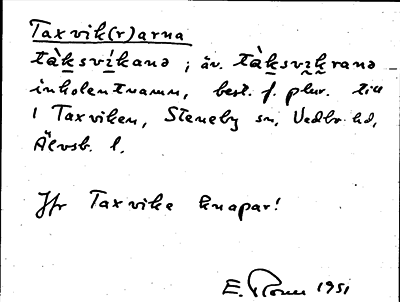 Taxvik(r)arna
tàksvíkanə ; äv. tàksvikranə
inkolentnamn, best. f. plur. till
1 Taxviken, Steneby sn, Vedbo hd,
Älvsb. l.
Jfr Taxvike knapar!
E. 1951